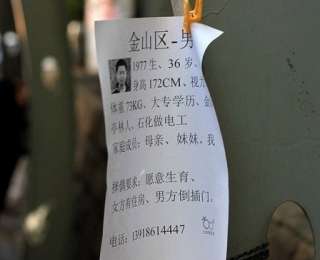 金山区-男
1977生、36岁、
身高172CM、视力
体重73KG、大专学历、金
亭林人、石化做电工
家庭成员:母亲、妹妹、我
择偶要求:愿意生育、
女方有住房、男方倒插门。
电话:13918614447